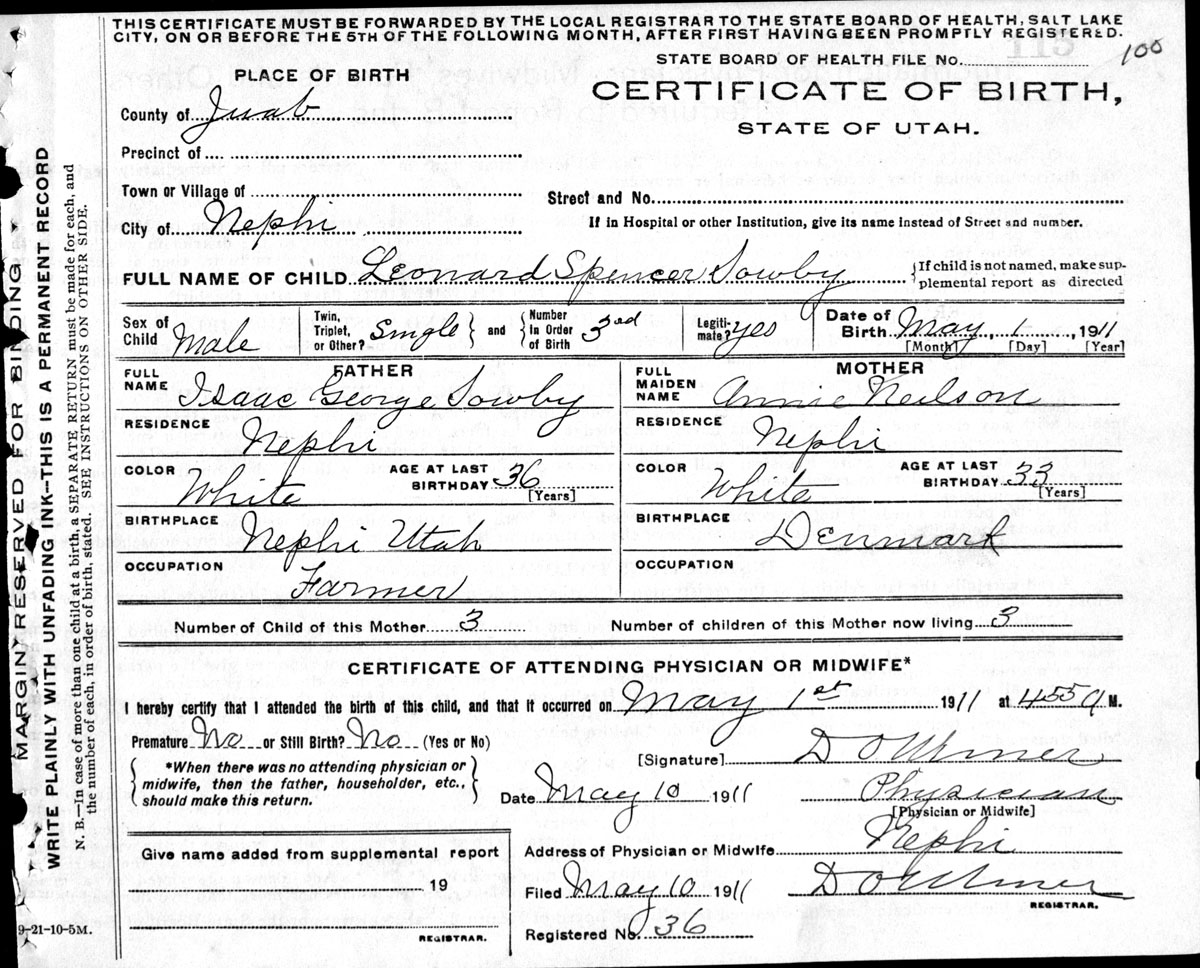 THIS CERTIFICATE MUST BE FORWARDED BY THE LOCAL REGISTRAR TO THE STATE BOARD OF HEALTH, SALT LAKE
CITY, ON OR BEFORE THE 5TH OF THE FOLLOWING MONTH, AFTER FIRST HAVING BEEN PROMPTLY REGISTERED.
STATE BOARD OF HEALTH FILE No. 100
PLACE OF BIRTH
CERTIFICATE OF BIRTH,
STATE OF UTAH.
County of Juab
Precinct of
Town or Village of
Street and No.
City of Nephi
If in Hospital or other Institution, give its name instead of Street and number.
FULL NAME OF CHILD Leonard Spencer Sowby
If child is not named, make sup-
plemental report as directed
Sex of Child Male
Twin, Triplet, or Other? Single and Number In Order of Birth 3rd
Legiti-mate? yes
Date of Birth May 1, 1911
[Month] [Day] [Year]
FATHER
FULL NAME Isaac George Sowby
RESIDENCE Nephi
COLOR White AGE AT LAST BIRTHDAY 36 [Years]
BIRTHPLACE Nephi Utah
OCCUPATION Farmer
MOTHER
FULL MAIDEN NAME Annie Neilson
RESIDENCE Nephi
COLOR White AGE AT LAST BIRTHDAY 33 [Years]
BIRTHPLACE Denmark
OCCUPATION
Number of Child of this Mother 3 Number of children of this Mother now living 3
CERTIFICATE OF ATTENDING PHYSICIAN OR MIDWIFE*
I hereby certify that I attended the birth of this child, and that it occurred on May 1st 1911 at 455 a M.
Premature No or Still Birth? No (Yes or No)
*When there was no attending physician or
midwife, then the father, householder, etc.,
should make this return.
[Signature]
Date May 10 1911 Physician
[Physician or Midwife]
Address of Physician or Midwife Nephi
Give name added from supplemental report
19
REGISTRAR.
Filed May 10 1911
REGISTRAR.
Registered No. 36
9-21-10-5M.
MARGIN RESERVED FOR BINDING
WRITE PLAINLY WITH UNFADING INK—THIS IS A PERMANENT RECORD
N. B.—In case of more than one child at a birth, a SEPARATE RETURN must be made for each, and
the number of each, in order of birth, stated. SEE INSTRUCTIONS ON OTHER SIDE.